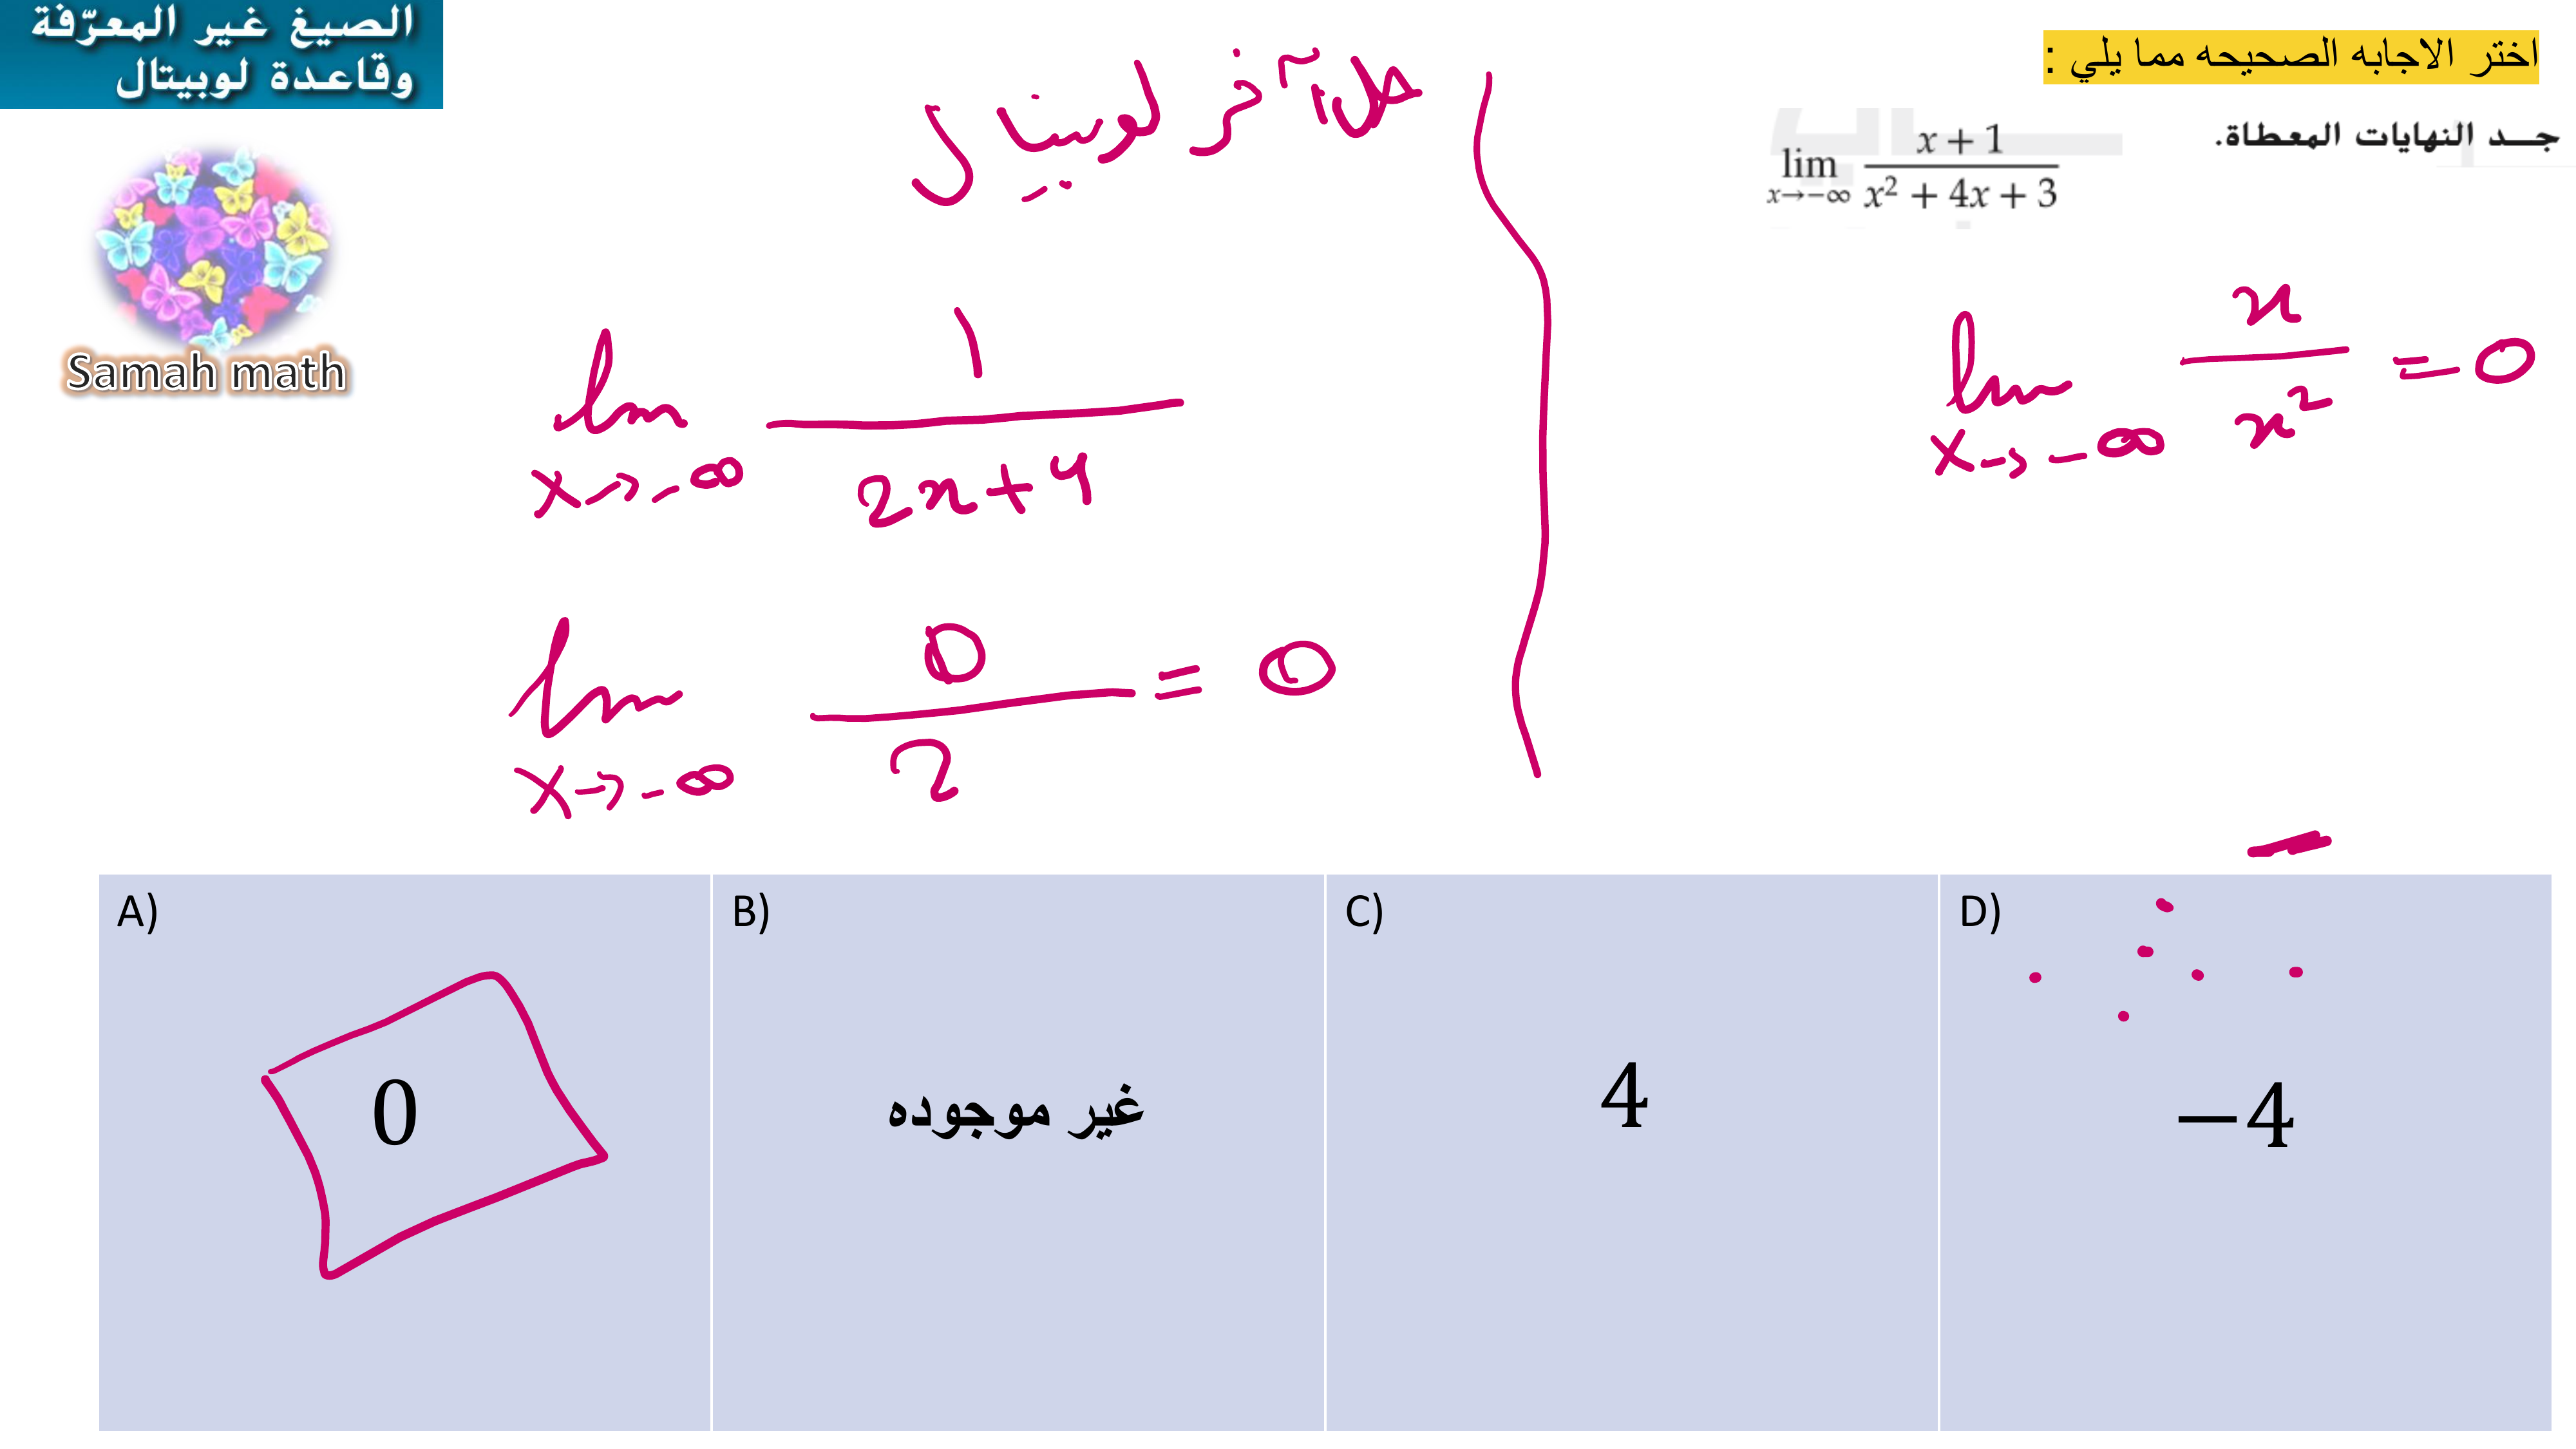 الصيغ غير المعرّفة
وقاعدة لوبيتال
Samah math
اختر الاجابه الصحيحه مما يلي :
جد النهايات المعطاة.
lim x→−∞ (x + 1)/(x² + 4x + 3)
lim x→−∞ x/x² = 0
حل آخر لوبيتال
lim x→−∞ 1/(2x+4)
lim x→−∞ 0/2 = 0
A) 0
B) غير موجوده
C) 4
D) −4